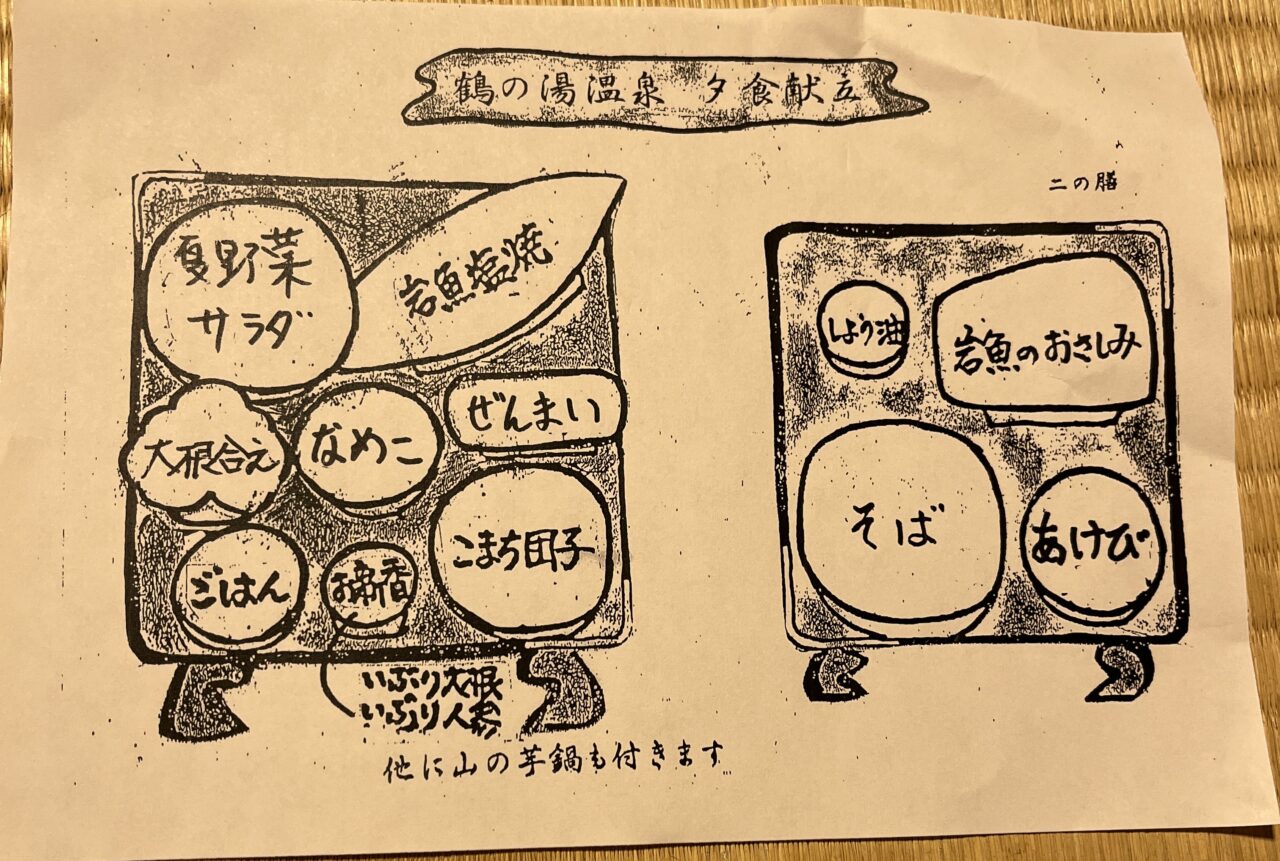 鶴の湯温泉 夕食献立
夏野菜
サラダ
岩魚塩焼
大根合え
なめこ
ぜんまい
ごはん
お新香
こまち団子
いぶり大根
いぶり人参
他に山の芋鍋も付きます
二の膳
しょう油
岩魚のおさしみ
そば
あけび